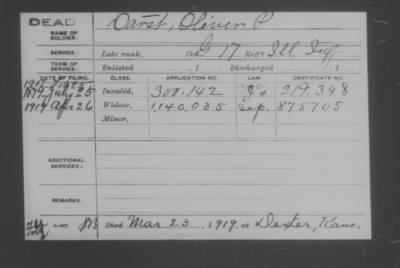 DEAD
NAME OF SOLDIER: Darst, Oliver P
SERVICE: Late rank, Co. G 17 Reg't Ill Inf
TERM OF SERVICE: Enlisted , 1 Discharged , 1
DATE OF FILING. CLASS. APPLICATION NO. LAW. CERTIFICATE NO.
1879 July 25 Invalid, 308.142 219.348
1919 Apr 26 Widow, 1,140,035 Sep. 875705
Minor,
ADDITIONAL SERVICES:
REMARKS:
Died Mar 23, 1919, at Dexter, Kans.